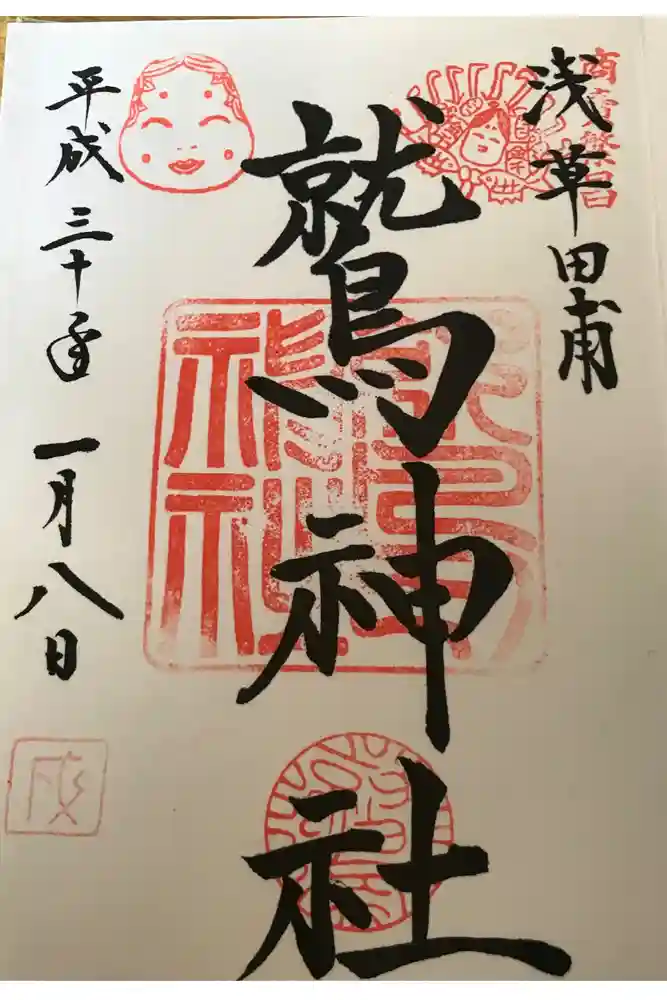 浅草田甫
商売繁昌
鷲神社
平成三十年
一月八日
戌